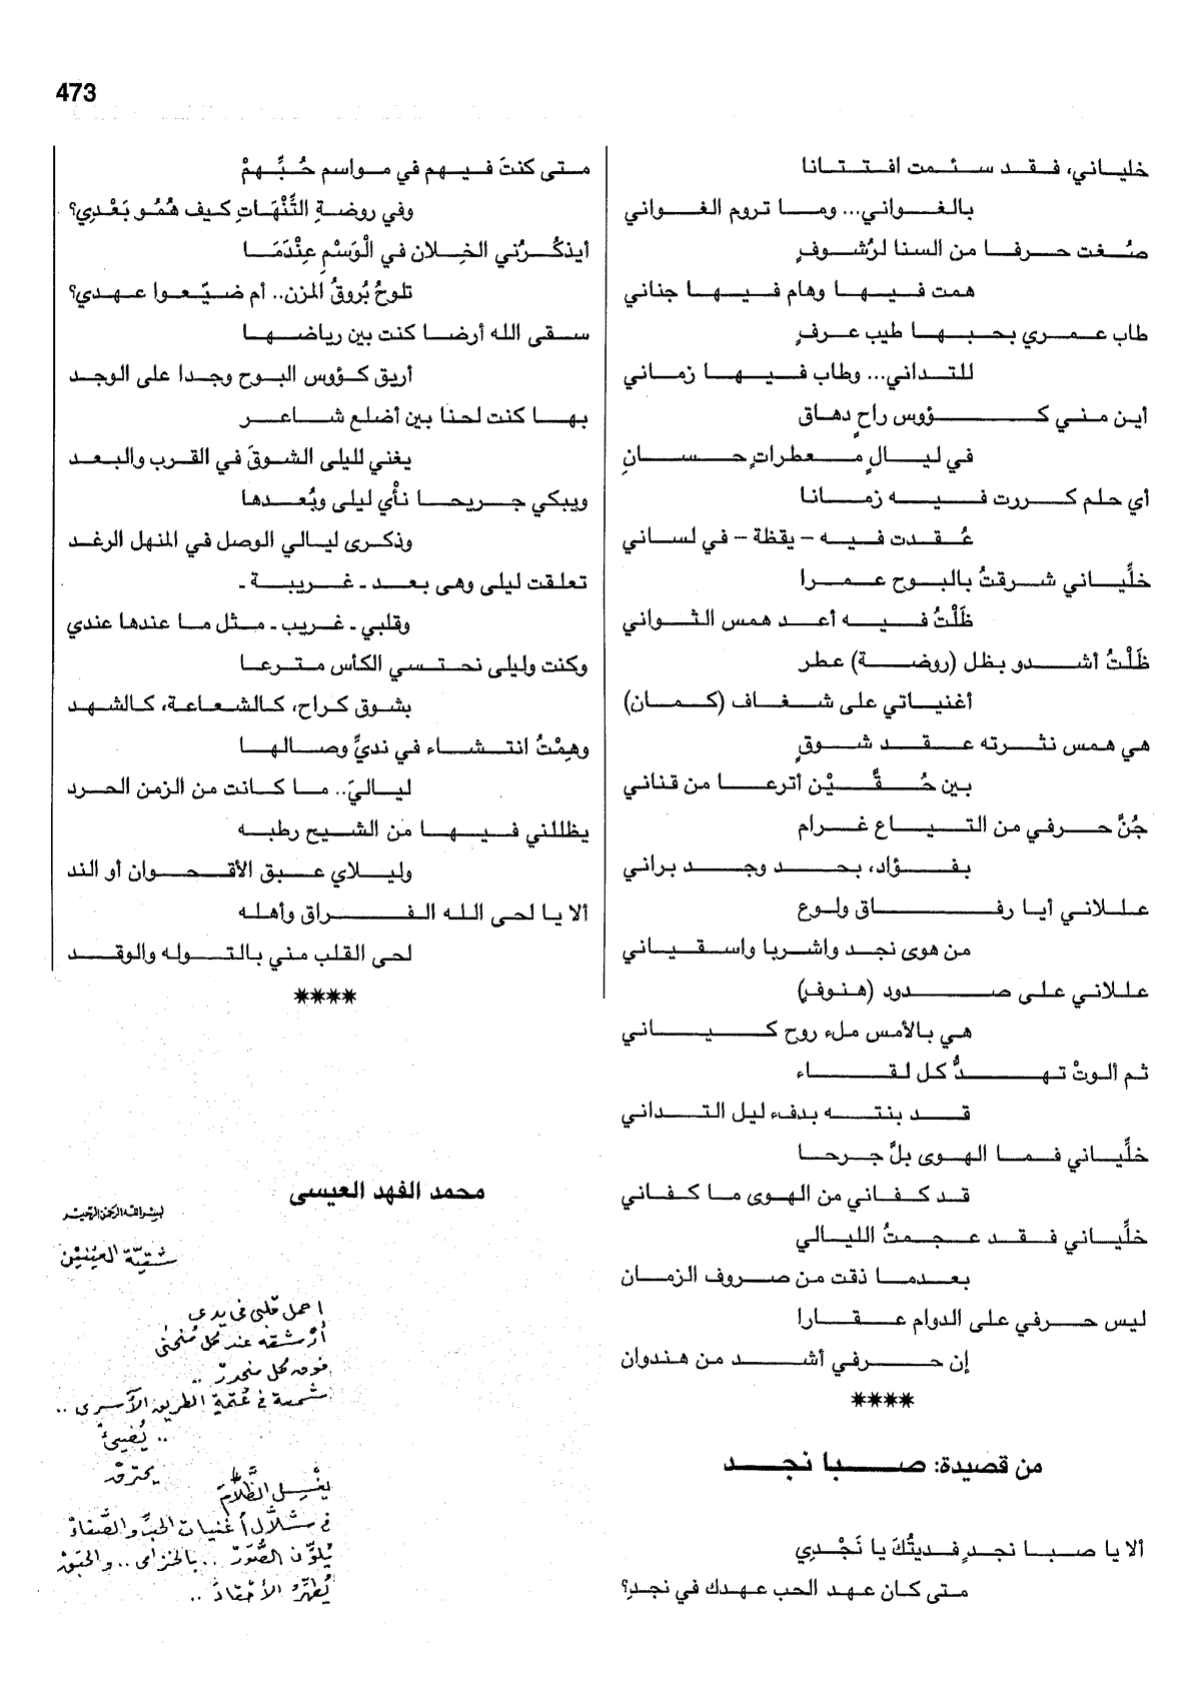 473
خلياني، فقد سئمت افتتانا
بالغواني... وما تروم الغواني
صُغت حرفا من السنا لرُشوفٍ
همت فيها وهام فيها جناني
طاب عمري بحبها طيب عرفٍ
للتداني... وطاب فيها زماني
أين مني كؤوس راحٍ دهاق
في ليالٍ معطراتٍ حسانِ
أي حلم كررت فيه زمانا
عُقدت فيه - يقظة - في لساني
خلِّياني شرقتُ بالبوح عمرا
ظَلْتُ فيه أعد همس الثواني
ظَلْتُ أشدو بظل (روضة) عطر
أغنياتي على شغاف (كمان)
هي همس نثرته عقد شوقٍ
بين حُقَّيْن أترعا من قناني
جُنَّ حرفي من التياع غرام
بفؤاد، بحد وجد براني
عللاني أيا رفاق ولوع
من هوى نجد واشربا واسقياني
عللاني على صدود (هنوفٍ)
هي بالأمس ملء روح كياني
ثم ألوتْ تهدُّ كل لقاء
قد بنته بدفء ليل التداني
خلِّياني فما الهوى بلَّ جرحا
قد كفاني من الهوى ما كفاني
خلِّياني فقد عجمتُ الليالي
بعدما ذقت من صروف الزمان
ليس حرفي على الدوام عقارا
إن حرفي أشد من هندوان
****
من قصيدة: صبا نجد
ألا يا صبا نجدٍ فديتُكَ يا نَجْدِي
متى كان عهد الحب عهدك في نجدِ؟
متى كنتَ فيهم في مواسم حُبِّهمْ
وفي روضةِ التَّنْهَاتِ كيف هُمُو بَعْدِي؟
أيذكُرُني الخِلان في الْوَسْمِ عِنْدَمَا
تلوحُ بُروقُ المزن.. أم ضيّعوا عهدي؟
سقى الله أرضا كنت بين رياضها
أريق كؤوس البوح وجدا على الوجد
بها كنت لحنا بين أضلع شاعر
يغني لليلى الشوقَ في القرب والبعد
ويبكي جريحا نأْي ليلى وبُعدها
وذكرى ليالي الوصل في المنهل الرغد
تعلقت ليلى وهى بعد ـ غريبة ـ
وقلبي ـ غريب ـ مثل ما عندها عندي
وكنت وليلى نحتسي الكأس مترعا
بشوق كراح، كالشعاعة، كالشهد
وهِمْتُ انتشاء في نديِّ وصالها
لياليَ.. ما كانت من الزمن الحرد
يظللني فيها من الشيح رطبه
وليلاي عبق الأقحوان أو الند
ألا يا لحى الله الفراق وأهله
لحى القلب مني بالتوله والوقد
****
محمد الفهد العيسى
بسم الله الرحمن الرحيم
شقيّة العينين
احمل قلبي في يدي
أرشقه عند كل منحنى
فوق كل منحدرْ ..
شمعة في عُتمة الطريق الأسرى ..
.. يُضيئُ
يحترقْ
يغْسل الظَّلامَ
في شلَّال أغنيات الحبِّ والصَّفاءْ
يُلوِّن الصُّوَرْ .. بالخزامى .. والحبَقْ
يُطهِّرُ الأحْقادَ ..